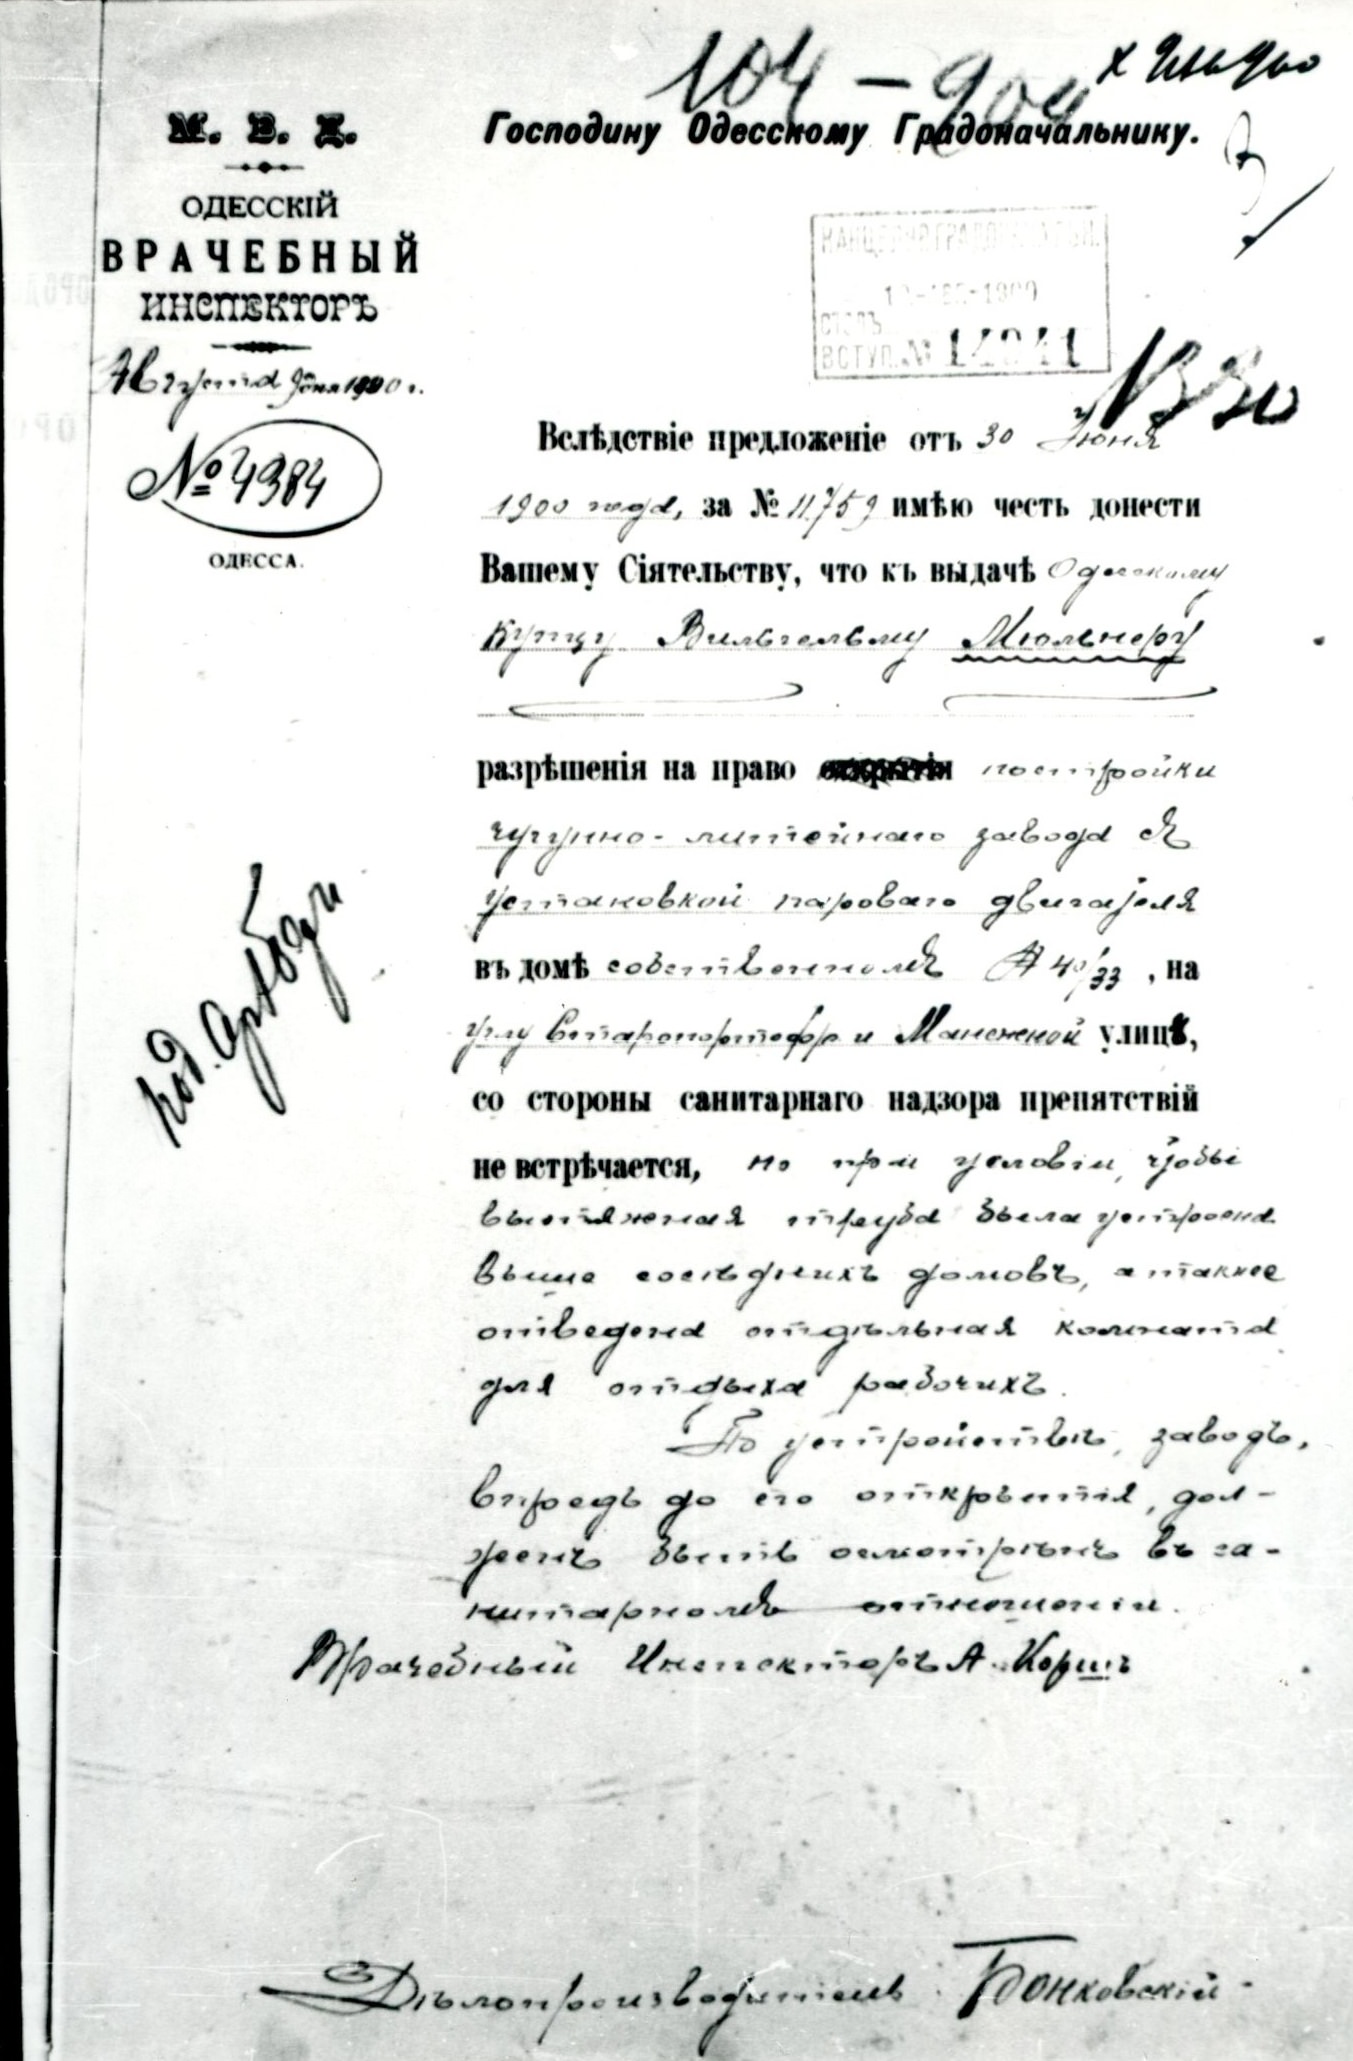 104 – 904
М. В. Д.
Господину Одесскому Градоначальнику.
ОДЕССКІЙ
ВРАЧЕБНЫЙ
ИНСПЕКТОРЪ
Августа 9 дня 1900 г.
№ 4384
ОДЕССА.
1900
СТОЛЪ
ВСТУП. №
Вслѣдствіе предложеніе отъ 30 Іюня
1900 года, за № 11759 имѣю честь донести
Вашему Сіятельству, что къ выдачѣ Одесскому
купцу Вильгельму Мюльнеру
разрѣшенія на право открытія постройки
чугунно-литейнаго завода съ
установкой парового двигателя
въ домѣ собственномъ № 40/33, на
углу Старопортофр и Манежной улицѣ,
со стороны санитарнаго надзора препятствій
не встрѣчается, но при условіи, чтобы
вытяжная труба была устроена
выше сосѣднихъ домовъ, а также
отведена отдѣльная комната
для отдыха рабочихъ.
По устройствѣ, заводъ,
впредь до его открытія, дол-
женъ быть осмотрѣнъ въ са-
нитарномъ отношеніи.
Врачебный Инспекторъ А. Коршъ
Дѣлопроизводитель Бонковскій